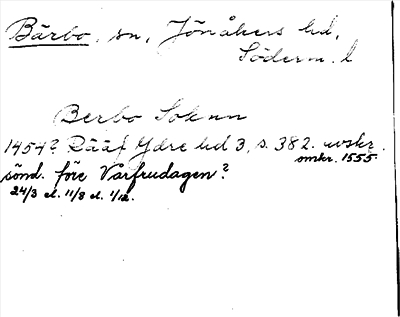 Bärbo, sn, Jönåkers hd,
Söderm. l
Berbo Soknn
1454? Rääf Ydre hd 3, s. 382. avskr.
omkr. 1555.
sönd. före Vårfrudagen?
24/3 el. 11/8 el. 1/12.